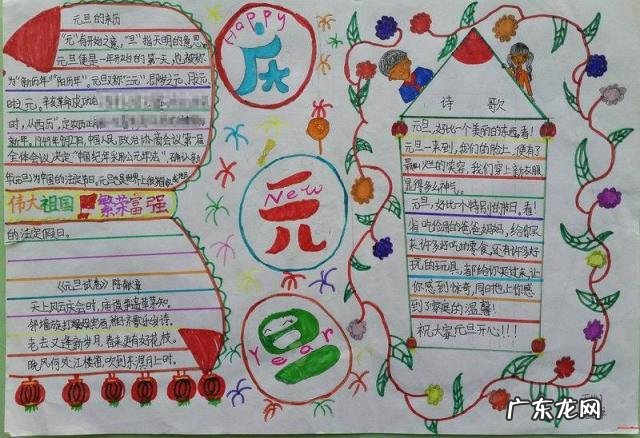 元旦的来历
"元"有开始之意,"旦"指天明的意思
元旦便是一年开始的第一天,也被称
为"新历年""阳历年"。元旦又称"三元",即岁之元、月之元、
时之元,辛亥革命成功后
时,从西历",定
新年,1949年9月27日,中国人民政治协商会议第一届
全体会议决定"中国纪年采用公元年法",
年元旦为中国的
伟大祖国 繁荣富强
的法定假日。
《元旦试卷》 陈献章
天上风云庆会时,庙谟争遣草茅知。
邻墙旋打娱宾酒,稚子齐歌乐岁诗。
老去又逢新岁月,春来更有好花枝。
晚风何处江楼笛,吹到东溟月上时。
Happy
庆
New
元
旦
Year
诗 歌
元旦,好比一个美丽的东西,看!
元旦一来到,我们的脸上,便有了
的笑容,我们穿上新衣服
显得多么神气。
元旦,好比个特别的节日,看!
省吃俭用的爸爸妈妈,给你买
来许多好吃的零食,还有许多好
玩的玩具,都给你买过来,让
你感到惊奇,同时也让你感
到了家庭的温馨!
祝大家元旦开心!!!
广东龙网